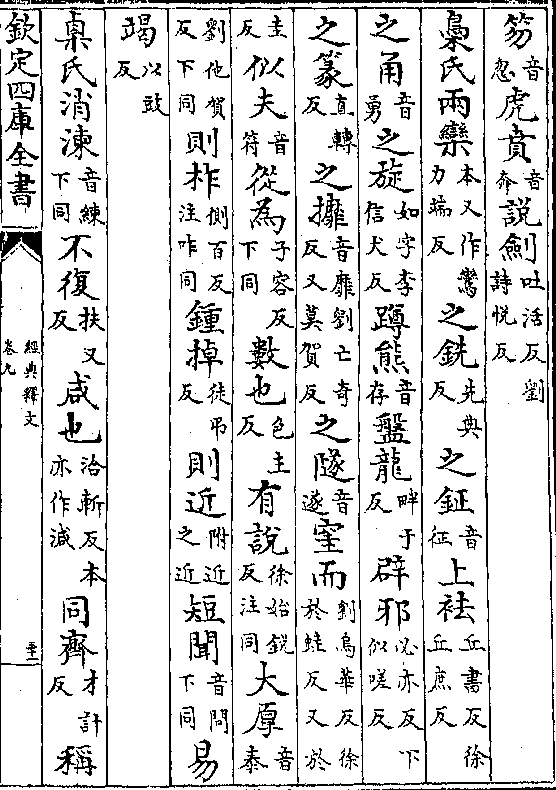 笏音忽虎賁音奔說劍吐活反劉詩悅反
鳧氏兩欒本又作鸞力端反之銑先典反之鉦音征上袪丘書反徐丘庶反
之甬音勇之旋如字李信犬反蹲熊音存盤龍畔于反辟邪必亦反下似嗟反
之篆直轉反之攠音靡劉亡奇反又莫賀反之隧音遂窐而劉烏華反徐於蛙反又於
圭反似夫音符從為子容反下同數也色主反有說徐始銳反注同大厚音泰
劉他賀反下同則柞側百反注咋同鍾掉徒弔反則近附近之近短聞音問下同易
竭以豉反
㮚氏消湅音練下同不復扶又反咸也洽斬反本亦作減同齊才計反稱
欽定四庫全書
經典釋文
卷九